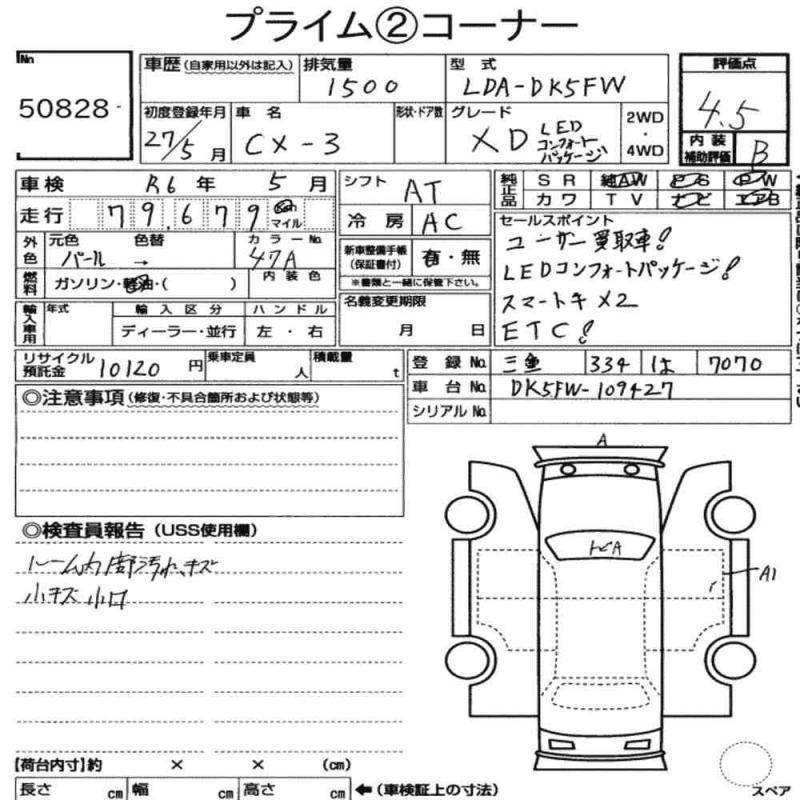 プライム②コーナー
No 50828
車歴 (自家用以外は記入)
排気量 1500
型式 LDA-DK5FW
評価点 4.5
初度登録年月 27/5月
車名 CX-3
形状・ドア数
グレード XD LED コンフォートパッケージ
2WD・4WD
内装補助評価 B
車検 R6年 5月
シフト AT
純正品 SR AW PS PW
カワ TV ナビ エアB
走行 79,679 km マイル
冷房 AC
セールスポイント
ユーザー買取車!
LEDコンフォートパッケージ!
スマートキー×2
ETC!
外色 元色 パール 色替 →
カラーNo. 47A
新車整備手帳(保証書付) 有・無
※書類と一緒に保管下さい。
燃料 ガソリン・軽油・( )
内装色
名義変更期限 月 日
輸入車用 年式 輸入区分 ハンドル
ディーラー・並行 左・右
リサイクル預託金 10120円
乗車定員 人
積載量 t
登録No. 334 は 7070
車台No. DK5FW-109427
シリアルNo.
◎注意事項 (修復・不具合箇所および状態等)
◎検査員報告 (USS使用欄)
ルーム内部汚れ、キズ
小キズ 小凹
A
トビA
A1
【荷台内寸】約 × × (cm)
長さ cm 幅 cm 高さ cm ←(車検証上の寸法)
スペア